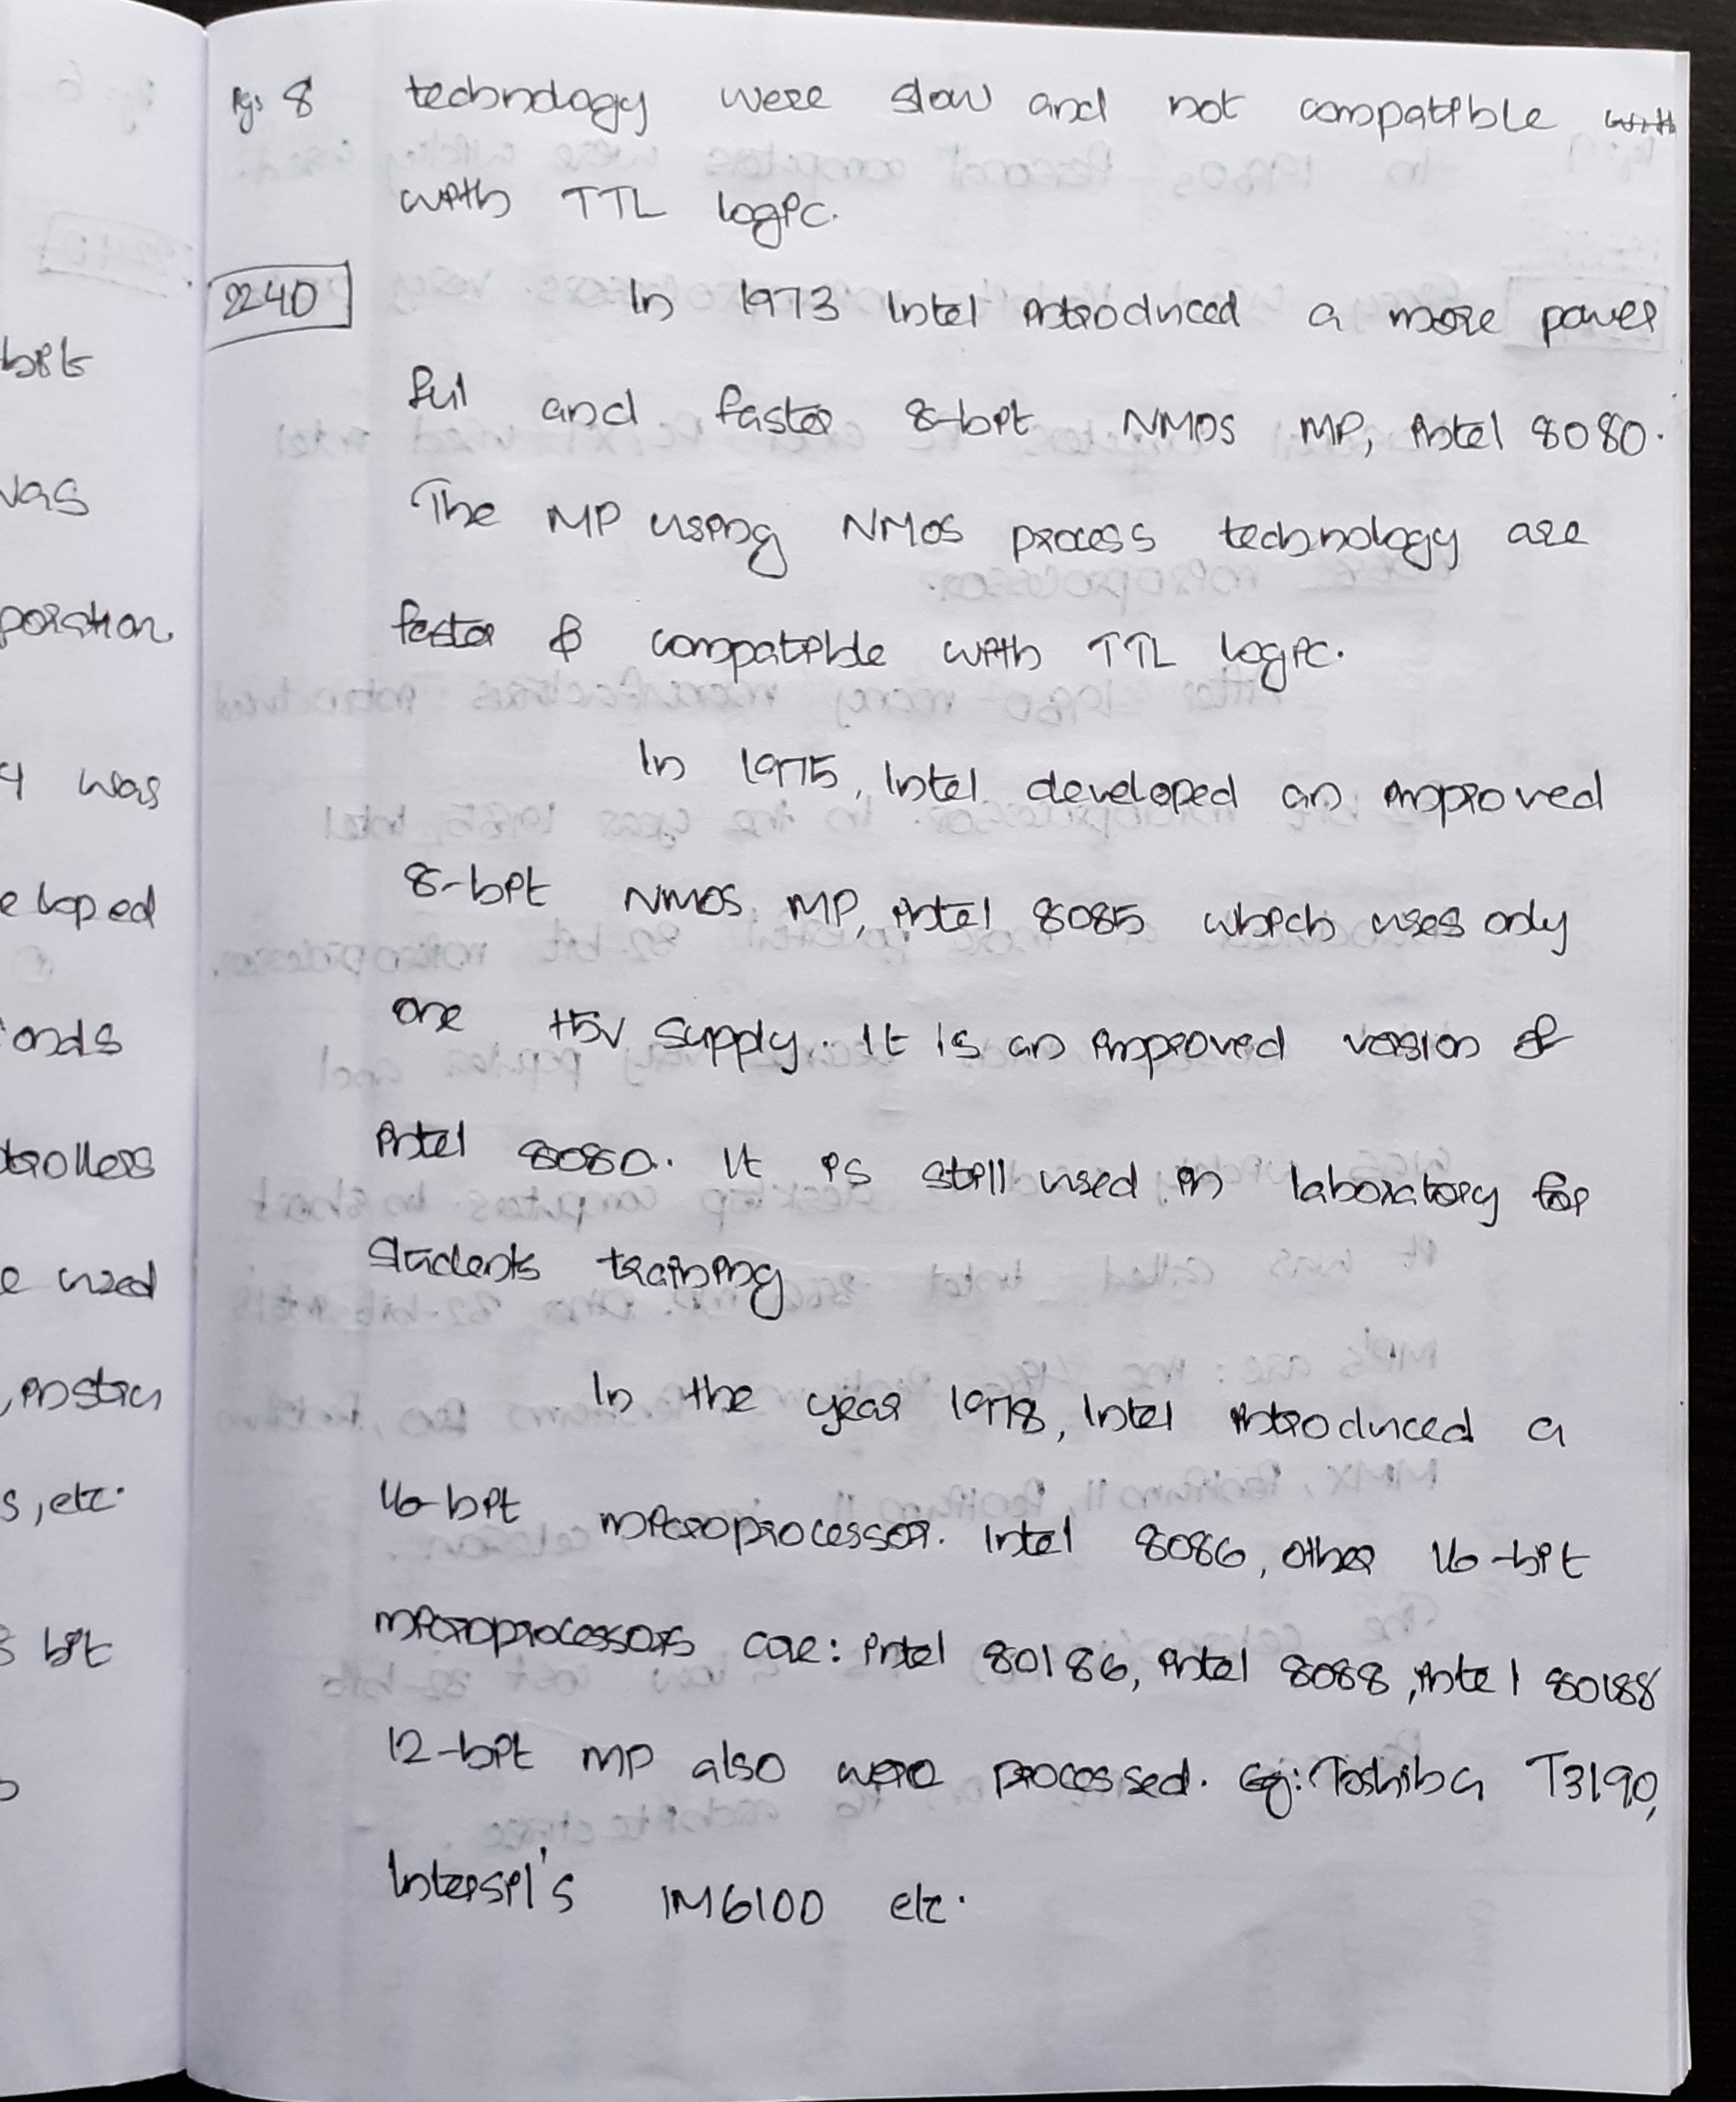 Pg: 8 technology were slow and not compatible with
with TTL logic.
2240 In 1973 Intel introduced a more power
ful and faster 8-bit NMOS MP, intel 8080.
The MP using NMOS process technology are
faster & compatible with TTL logic.
In 1975, Intel developed an improved
8-bit NMOS MP, intel 8085 which uses only
one +5V supply. It is an improved version of
intel 8080. It is still used in laboratory for
students training
In the year 1978, Intel introduced a
16-bit microprocessor. Intel 8086, other 16-bit
microprocessors are: intel 80186, intel 8088, intel 80188
12-bit MP also were processed. Eg: Toshiba T3190,
Intersil's IM6100 etc.
bit
was
poration
4 was
eloped
onds
trollers
e used
, instru
s, etc.
bit